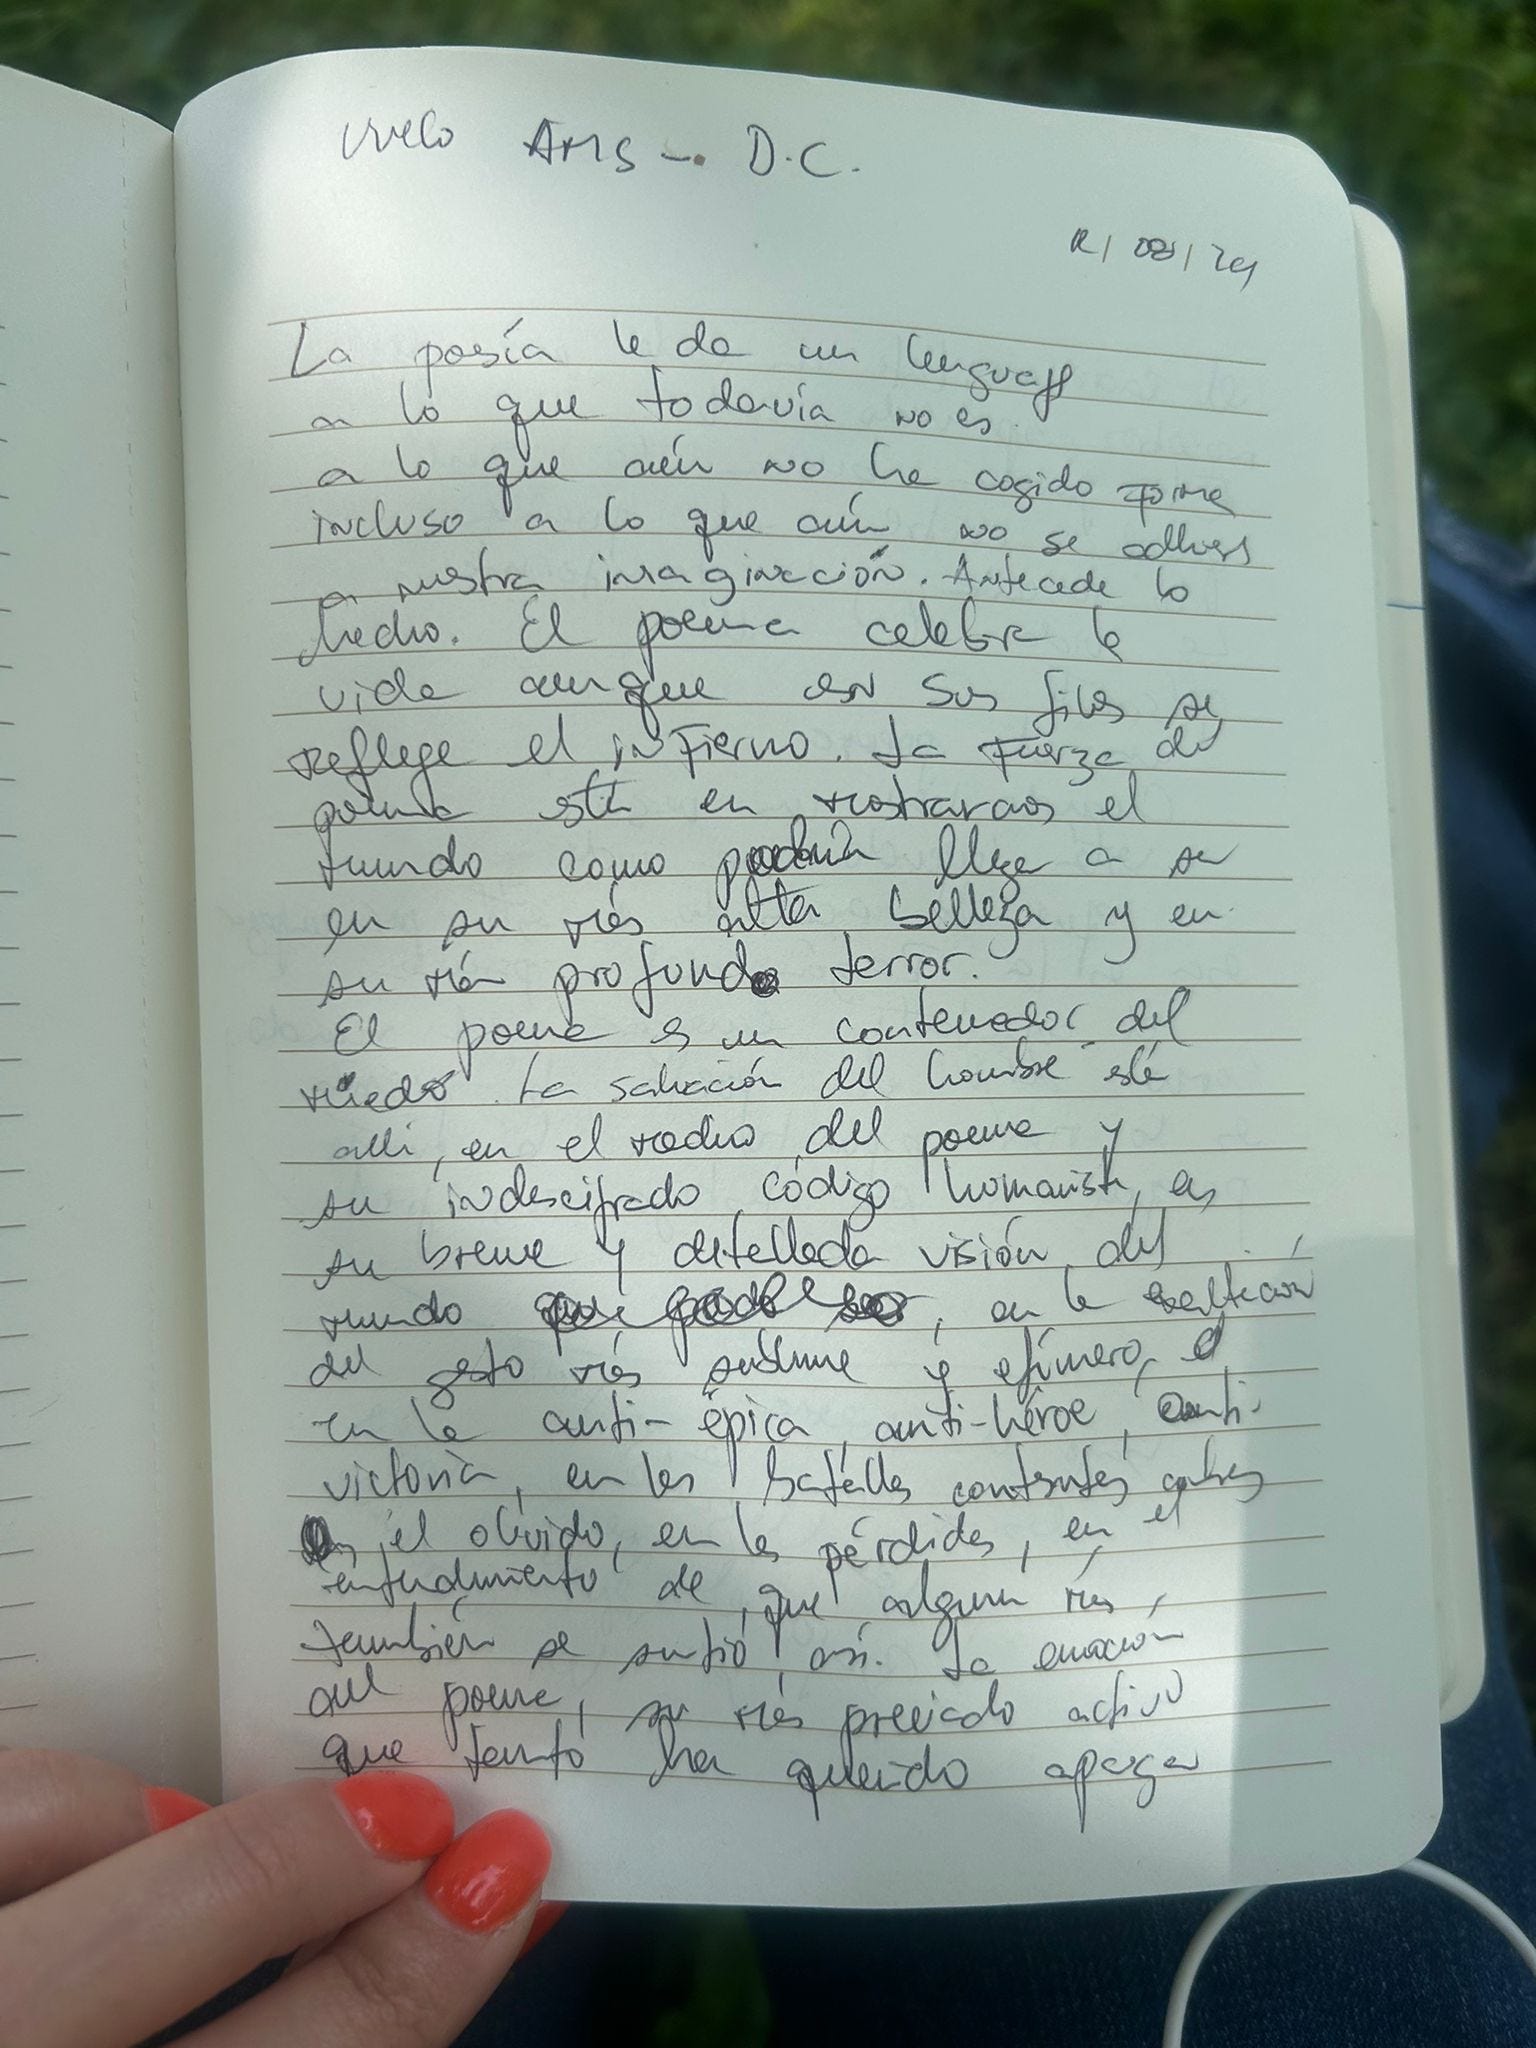 Vuelo AMS - D.C.
/08/24
La poesía le da un lenguaje
a lo que todavía no es.
a lo que aún no ha cogido forma
incluso a lo que aún no se adhiere
a nuestra imaginación. Antecede lo
hecho. El poema celebra la
vida aunque en sus filos se
refleje el infierno. La fuerza del
poema está en mostrarnos el
mundo como podría llegar a ser
en su más alta belleza y en
su más profundo terror.
El poema es un contenedor del
miedo. La salvación del hombre está
allí, en el del poema y
su indescifrado código humanista, en
su breve y detallada visión del
mundo, en la exaltación
del gesto más sublime y efímero,
en la anti-épica, anti-héroe, anti-
victoria, en las batallas constantes contra
el olvido, en las pérdidas, en el
entendimiento de que alguien más
también se sintió así. La emoción
del poema, su más preciado activo
que tanto ha querido apagar